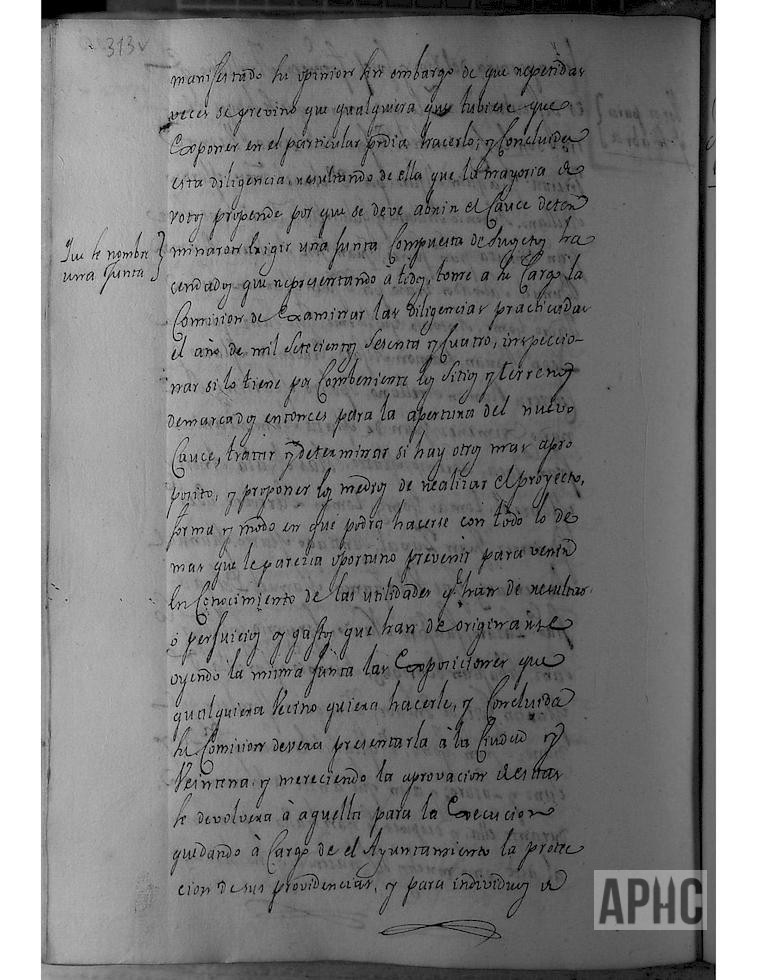 313v
manifestado su opinion sin embargo de que repetidas
veces se previno que qualquiera que tubiese que
Exponer en el particular podia hacerlo, y Concluida
esta diligencia, resultando de ella que la mayoria de
votos propende por que se deve abrir el Cauce deter
Que se nombre
una Junta
minaron eligir una Junta Compuesta de Sugetos ha
cendados que representando à todos, tome a su Cargo la
Comision de Examinar las diligencias practicadas
el año de mil setecientos sesenta y Cuatro, inspeccio-
nar si lo tiene por Combeniente los Sitios y terrenos
demarcados entonces para la apertura del nuevo
Cauce, tratar y determinar si hay otros mas apro
posito, y proponer los medios de realizar el proyecto,
forma y modo en que podra hacerse con todo lo de
mas que le parezca oportuno prevenir para venir
en Conocimiento de las utilidades q.e han de resultar
ò perjuicios y gastos que han de originarse
oyendo la misma Junta las Exposiciones que
qualquiera Vecino quiera hacerle, y Concluida
su Comision devera presentarla à la Ciudad y
Veintena y mereciendo la aprovacion de estas
se devolvera à aquella para la Execucion
quedando à Cargo de el Ayuntamiento la protec
cion de sus providencias, y para individuos de
APHC